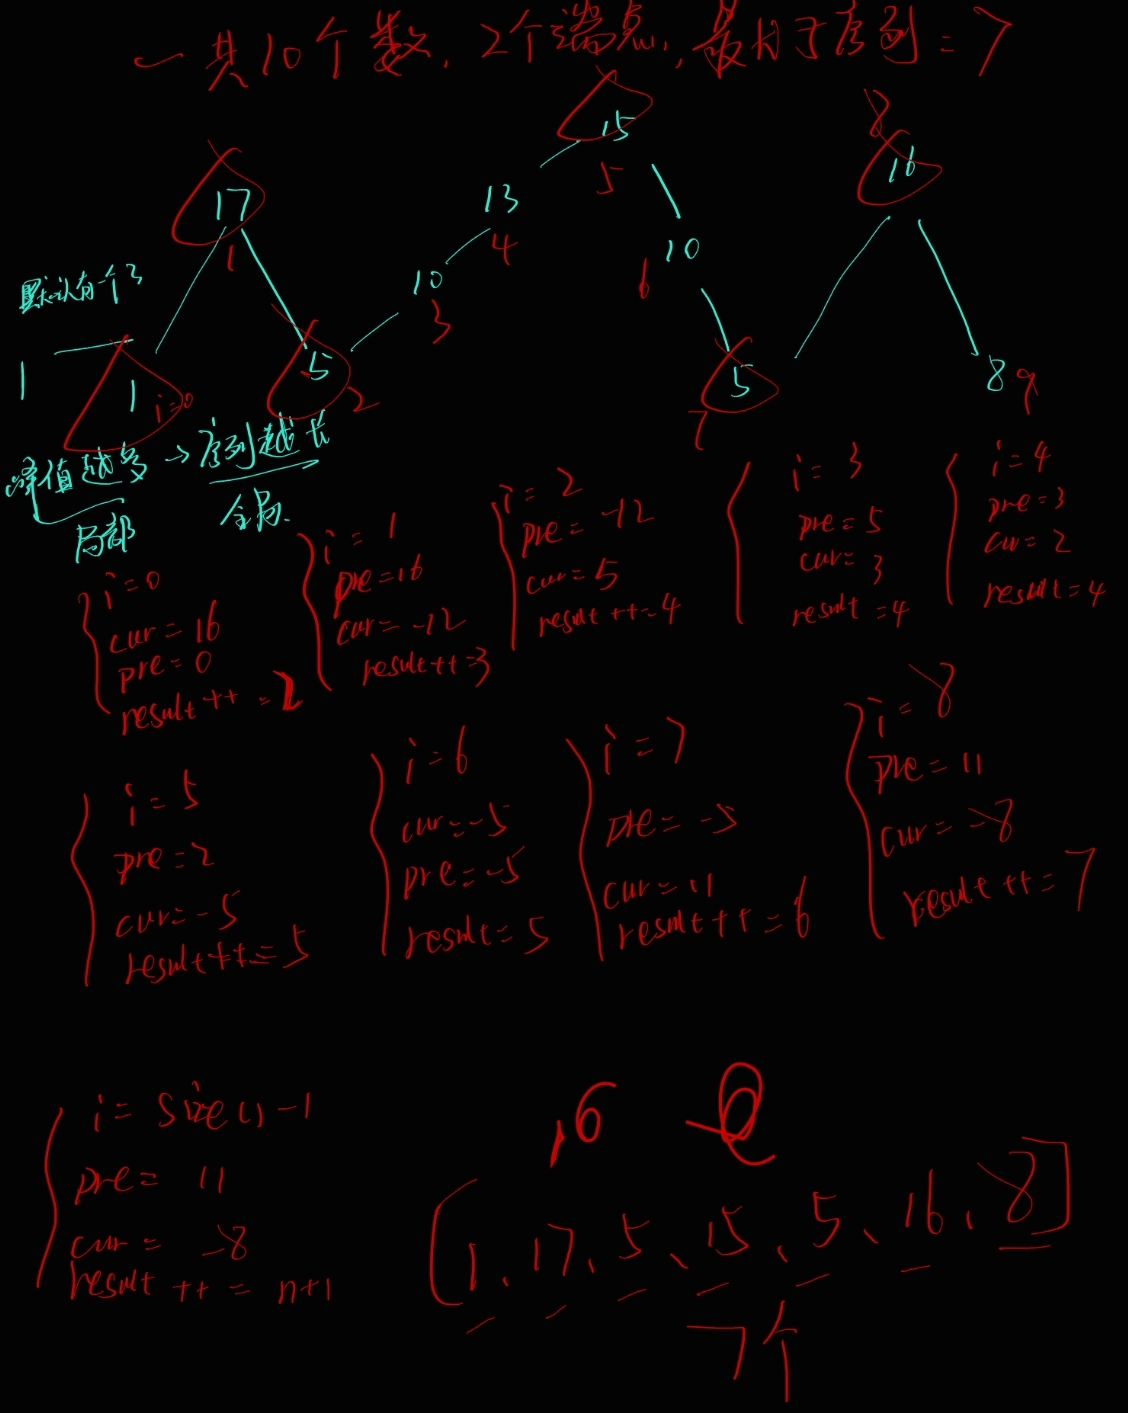 一共10个数，2个端点，最长子序列=7
8
15
16
17
5
13
1
4
10
6
10
默认有一个
3
1
1
i=0
5
2
5
7
8
9
峰值越多→序列越长
局部
全局.
i=0
cur=16
pre=0
result++=2
i=1
pre=16
cur=-12
result++=3
i=2
pre=-12
cur=5
result++=4
i=3
pre=5
cur=3
result=4
i=4
pre=3
cur=2
result=4
i=5
pre=2
cur=-5
result++=5
i=6
cur=-5
pre=-5
result=5
i=7
pre=-5
cur=11
result++=6
i=8
pre=11
cur=-8
result++=7
i=size()-1
pre=11
cur=-8
result++=n+1
[1、17、5、15、5、16、8]
7个